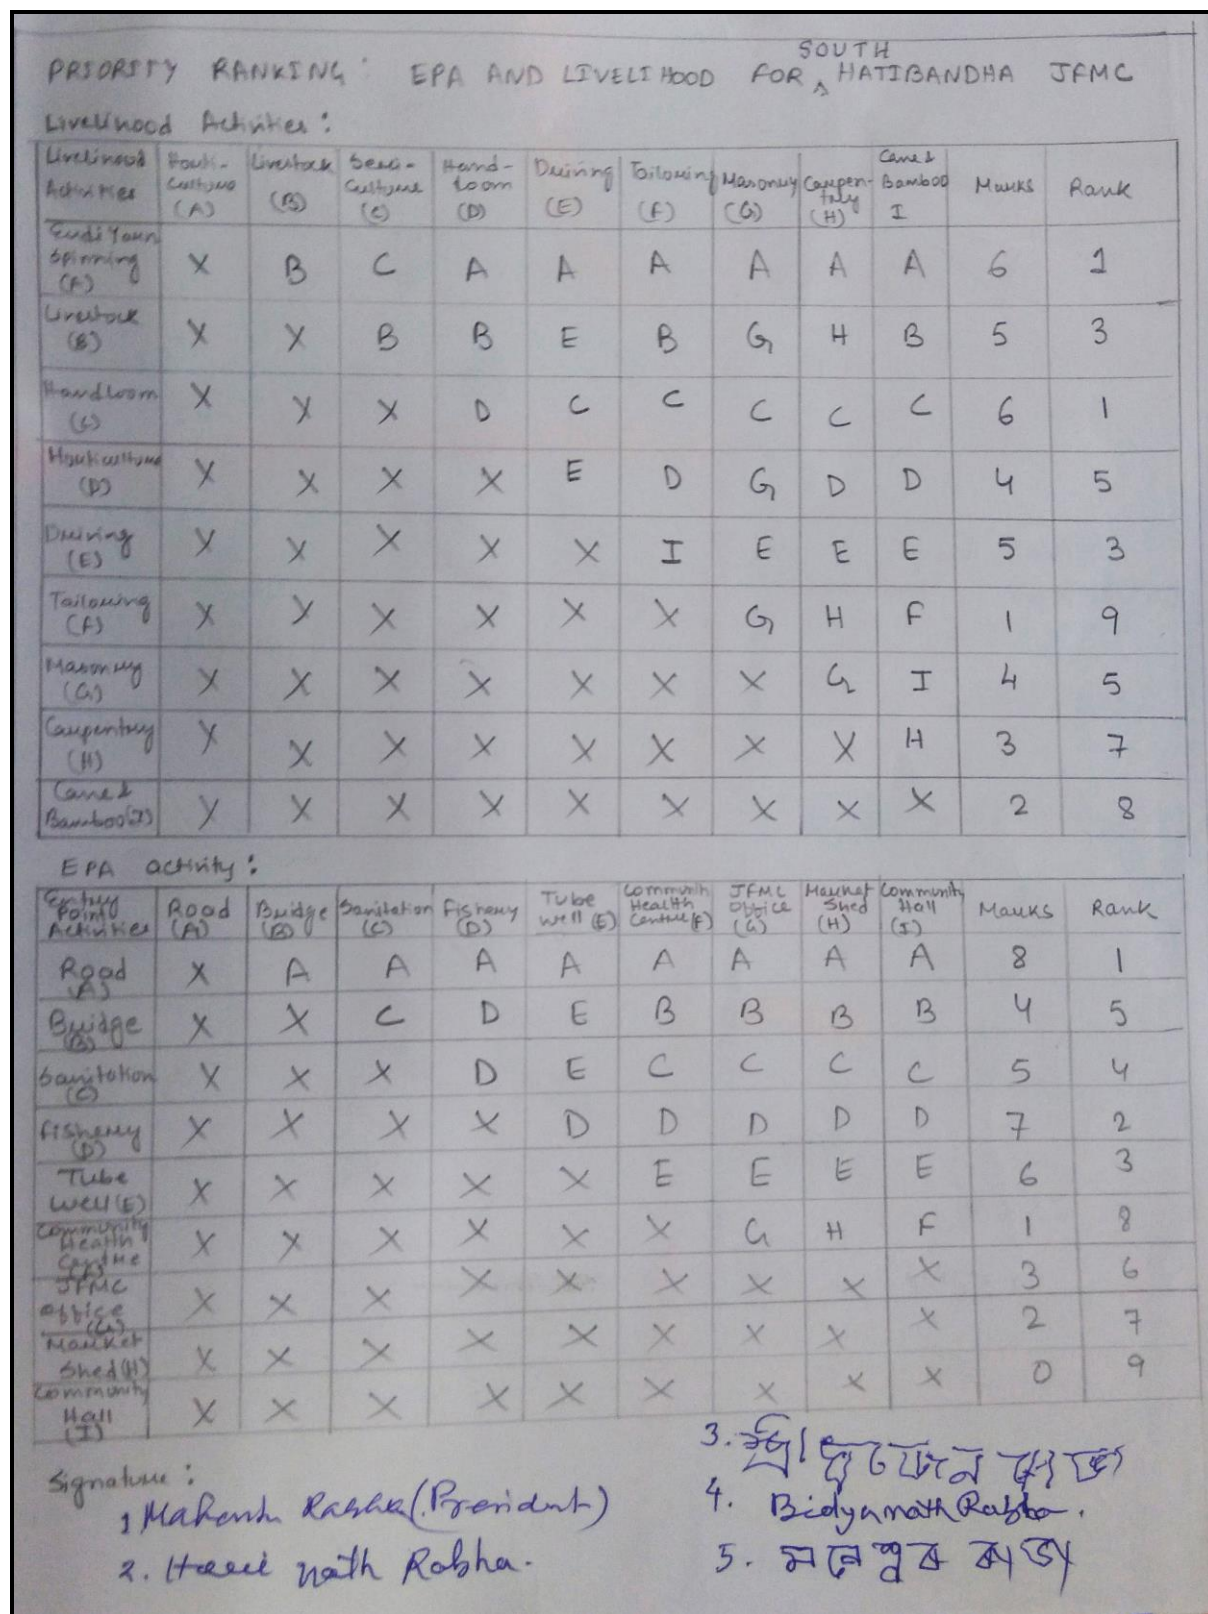 PRIORITY RANKING: EPA AND LIVELIHOOD FOR SOUTH HATIBANDHA JFMC
Livelihood Activities:
Livelihood Activities Horti-culture (A) Livestock (B) Seri-culture (C) Hand-loom (D) Driving (E) Tailoring (F) Masonry (G) Carpen-try (H) Cane & Bamboo I Marks Rank
Endi Yarn Spinning (A) X B C A A A A A A 6 1
Livestock (B) X X B B E B G H B 5 3
Handloom (C) X X X D C C C C C 6 1
Horticulture (D) X X X X E D G D D 4 5
Driving (E) X X X X X I E E E 5 3
Tailoring (F) X X X X X X G H F 1 9
Masonry (G) X X X X X X X G I 4 5
Carpentry (H) X X X X X X X X H 3 7
Cane & Bamboo (I) X X X X X X X X X 2 8
EPA activity:
Entry Point Activities Road (A) Bridge (B) Sanitation (C) Fishery (D) Tube well (E) Community Health Centre (F) JFMC Office (G) Market Shed (H) Community Hall (I) Marks Rank
Road (A) X A A A A A A A A 8 1
Bridge (B) X X C D E B B B B 4 5
Sanitation (C) X X X D E C C C C 5 4
Fishery (D) X X X X D D D D D 7 2
Tube Well (E) X X X X X E E E E 6 3
Community Health Centre (F) X X X X X X G H F 1 8
JFMC Office (G) X X X X X X X X X 3 6
Market Shed (H) X X X X X X X X X 2 7
Community Hall (I) X X X X X X X X X 0 9
Signature:
1 Rabha (President)
2. nath Rabha.
3. শ্রী
4. Bidyanath Rabha.
5. ৰাভা